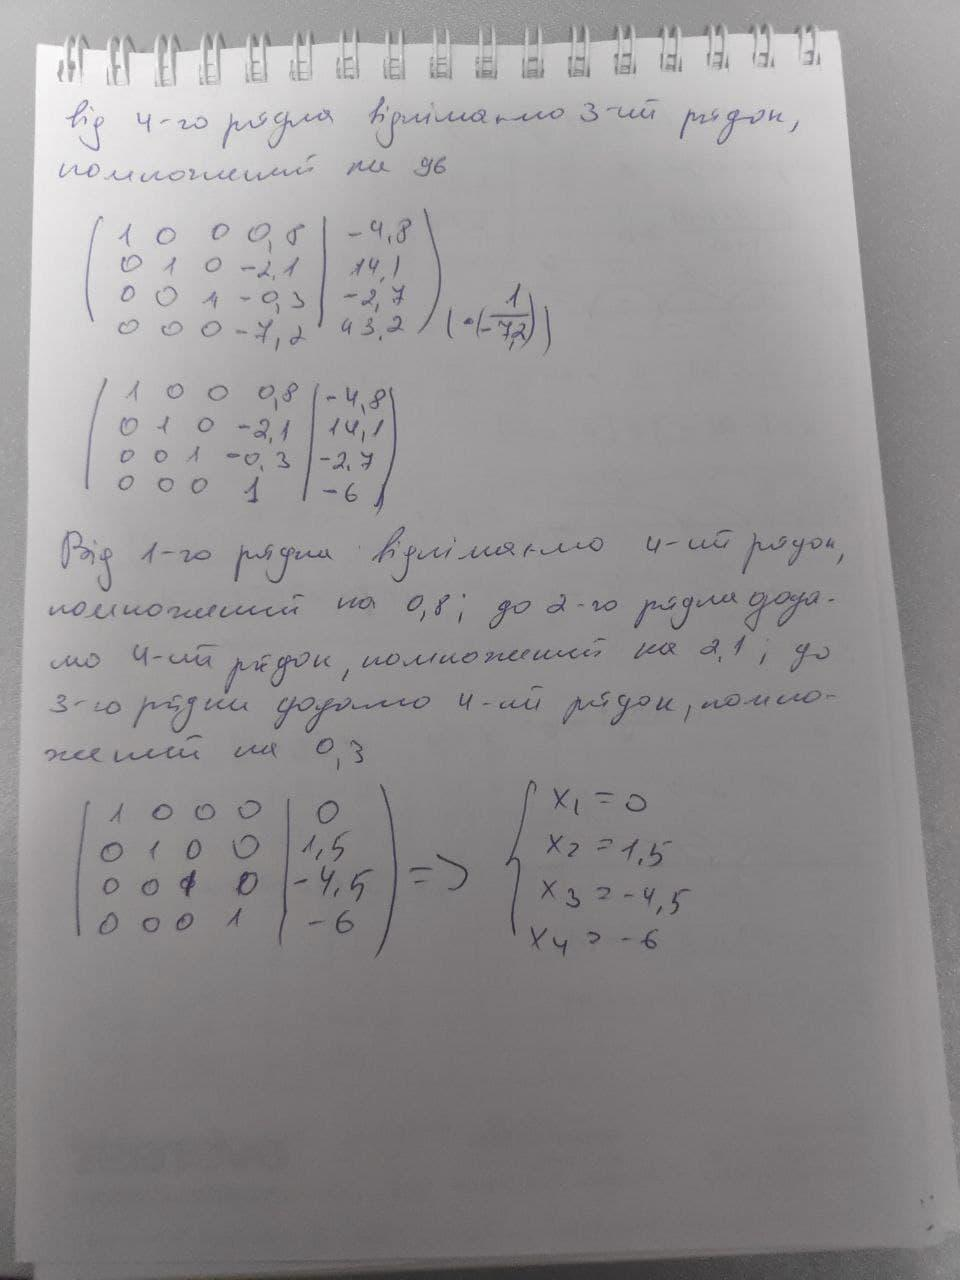 від 4-го рядка віднімаємо 3-ий рядок,
помножений на 96
1 0 0 0,8 | -4,8
0 1 0 -2,1 | 14,1
0 0 1 -0,3 | -2,7
0 0 0 -7,2 | 43,2 (·(1/-7,2))
1 0 0 0,8 | -4,8
0 1 0 -2,1 | 14,1
0 0 1 -0,3 | -2,7
0 0 0 1 | -6
Від 1-го рядка віднімаємо 4-ий рядок,
помножений на 0,8; до 2-го рядка дода-
мо 4-ий рядок, помножений на 2,1; до
3-го рядка додамо 4-ий рядок, помно-
жений на 0,3
1 0 0 0 | 0 => x1 = 0
0 1 0 0 | 1,5 x2 = 1,5
0 0 1 0 | -4,5 x3 = -4,5
0 0 0 1 | -6 x4 = -6